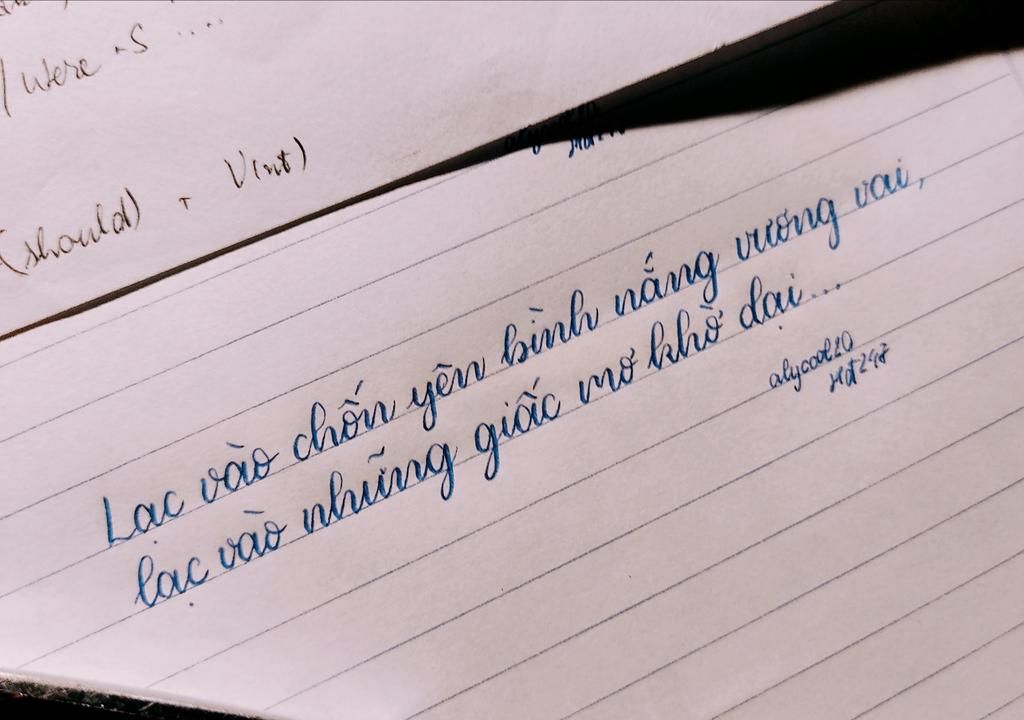 / were -s ....
(should) + V(nt)
Lạc vào chốn yên bình nắng vương vai,
lạc vào những giấc mơ khờ dại...
alycool20